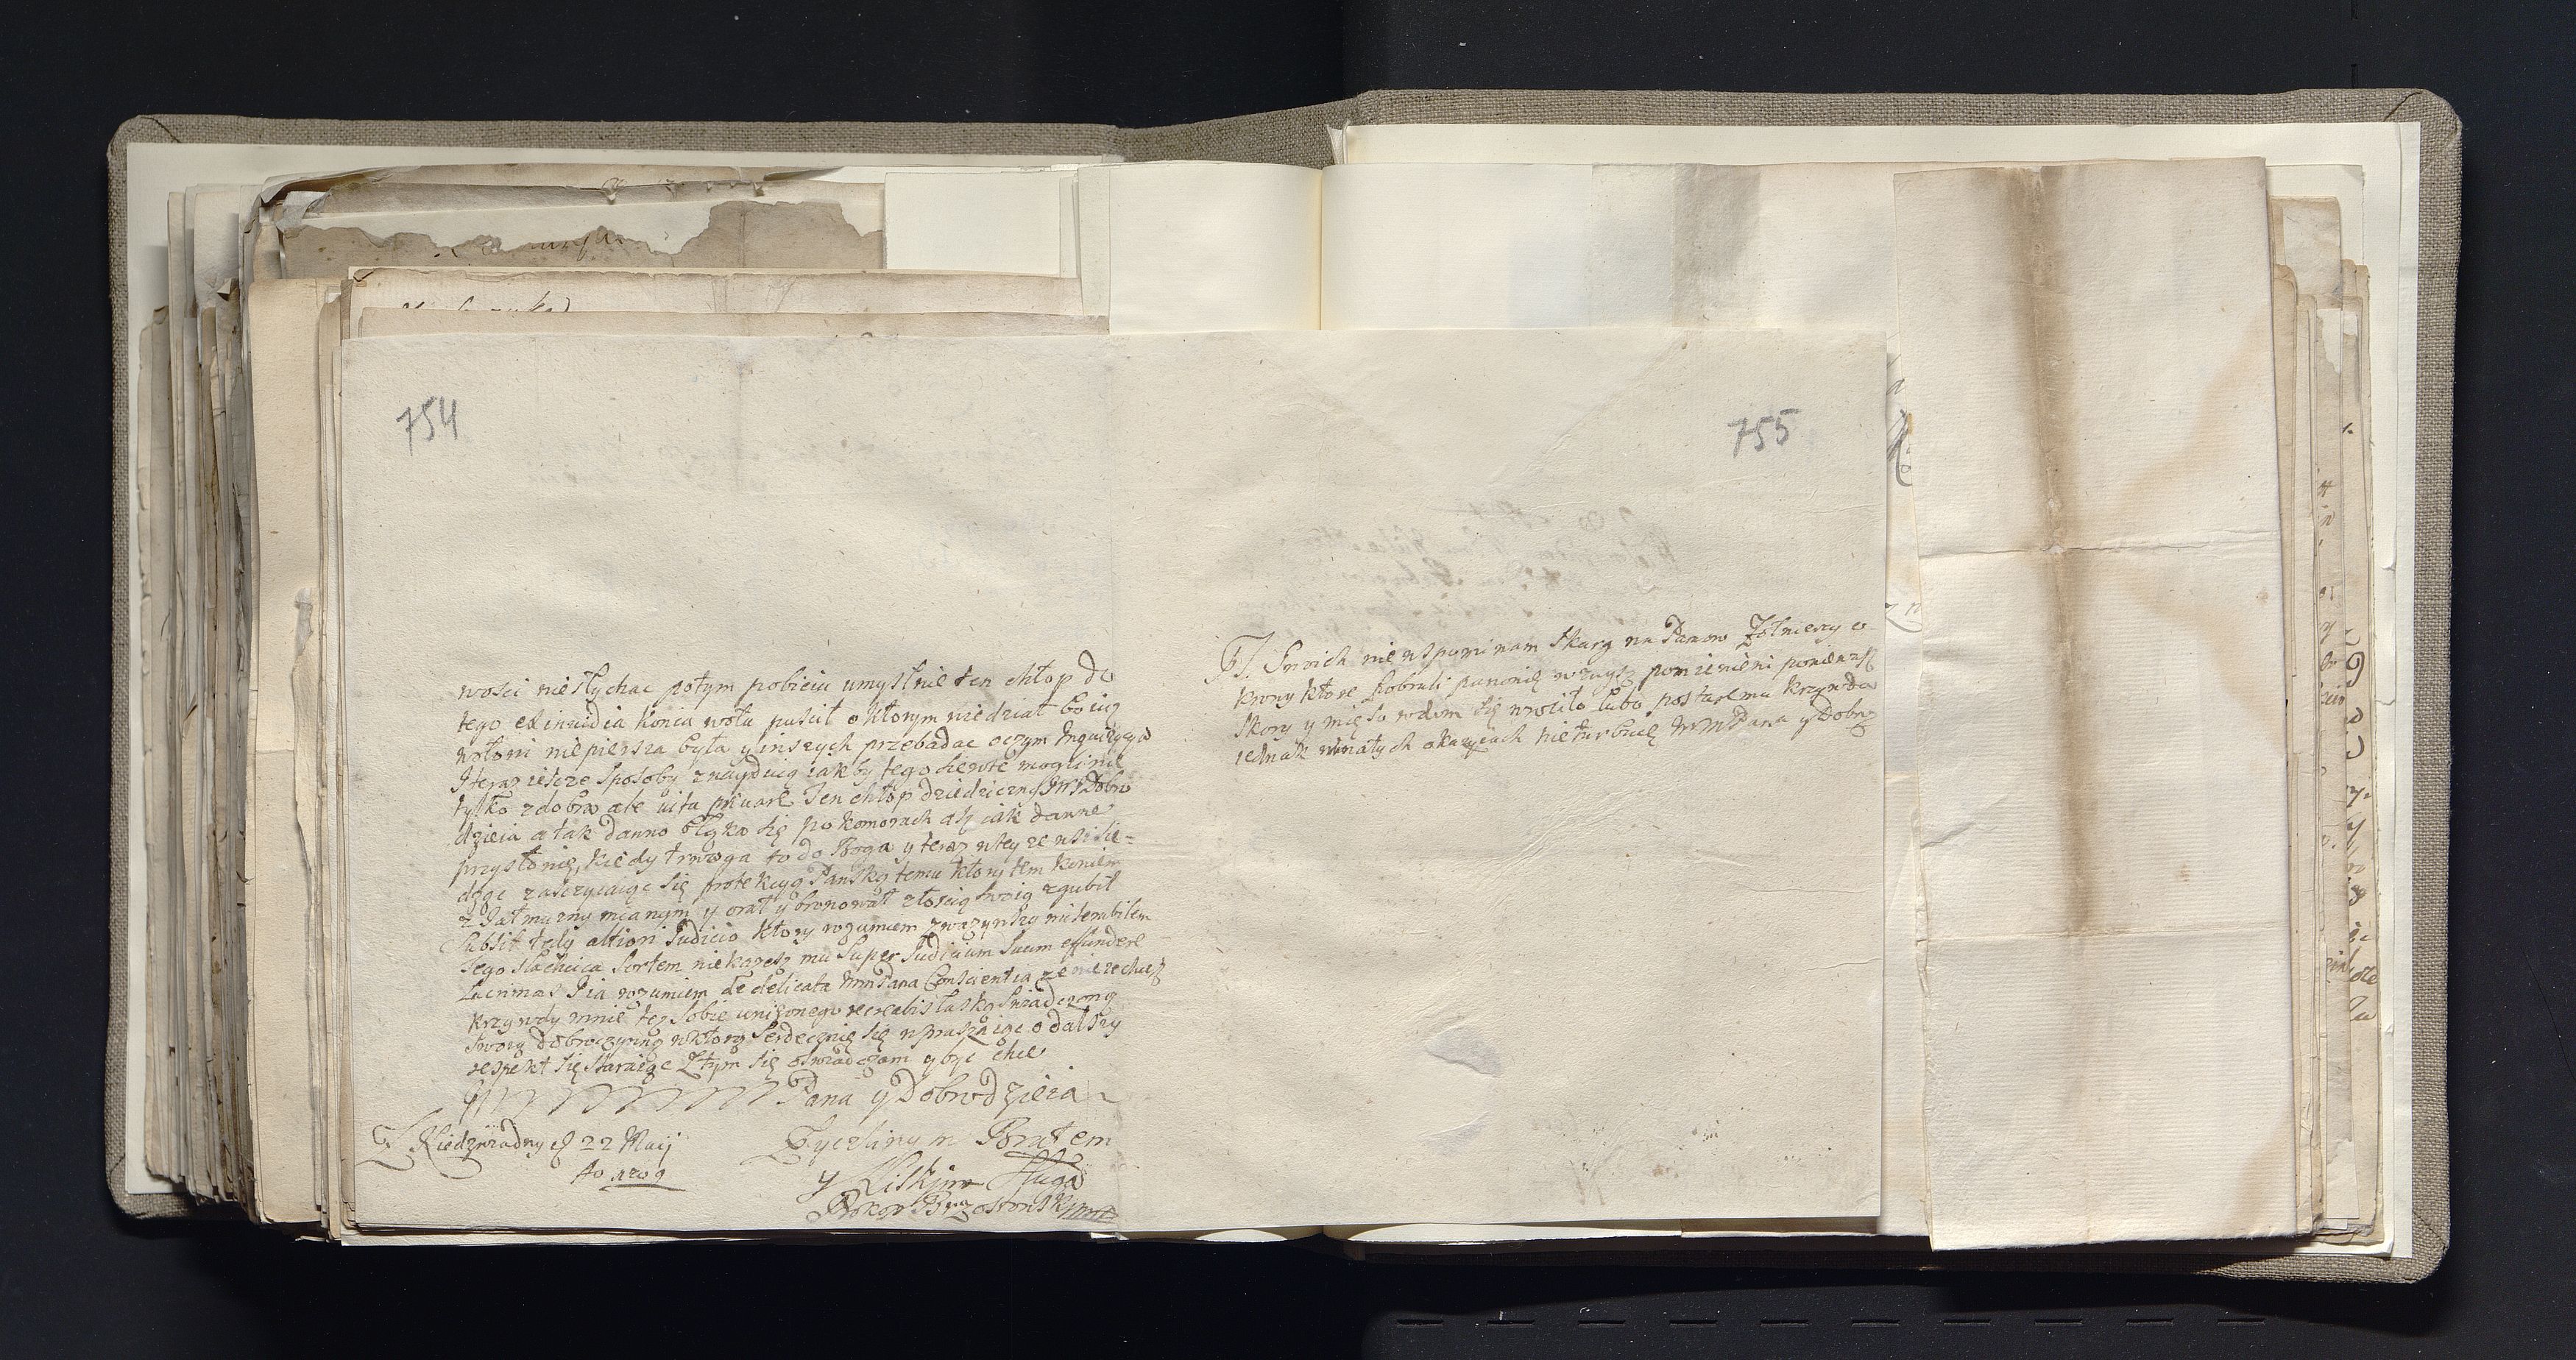 754
wości nie słychac potym pobiciu umyslnie ten chłop do
tego ex invidia konia wołu puscil o ktorym wiedział bo iuz
wołom nie piersza była y inszych przebadac oczym Inquizycya
I teraz iescze sposoby znayduią iakby tego sierote mogli nie
tylko z dobra ale vita privare Ten chłop dziedziczny Dobro
dzieia a tak dawno błąka się po komorach asz iak dawne
przysłowię, kiedy trwoga to do Boga y teraz w tey ze wsi sie=
dząc zasczycaiąc się protekcyą Panską temu ktory tem koniem
z Jałmuzny mianym y orał y bronował złoscią swoią zgubił
Subsit tedy altiori Judicio ktory rozumiem zwazywszy
tego slachcica sortem niekazesz mu super Judicium suum effundere
Lacrimas Pia rozumiem de delicata WmPana Conscientia ze niezechcesz
krzywdy mnie tez sobie unizonego łaską swiadczoną
swoią dobroczynną w ktorą serdecznię się wpraszaiąc o dalszy
respekt się staraiąc Ztym się oswiadczam y byc chce
Pana y Dobrodzieia
Z Niedzwiadny d 22 Maij
Ao 1709
Zyczliwym Bratem
y Niskim Sługą
Prokop Brzostowski
755
PS. Swoich nie wspominam skarg na Panow Zołnierzy o
krowy ktore pobrali panowie wzwysz pomienieni poniewasz
skory y mięso w dom się wrociło lubo postaremu krzywda
iednak w małych okazyiach nie turbuię WMMPana y Dobro